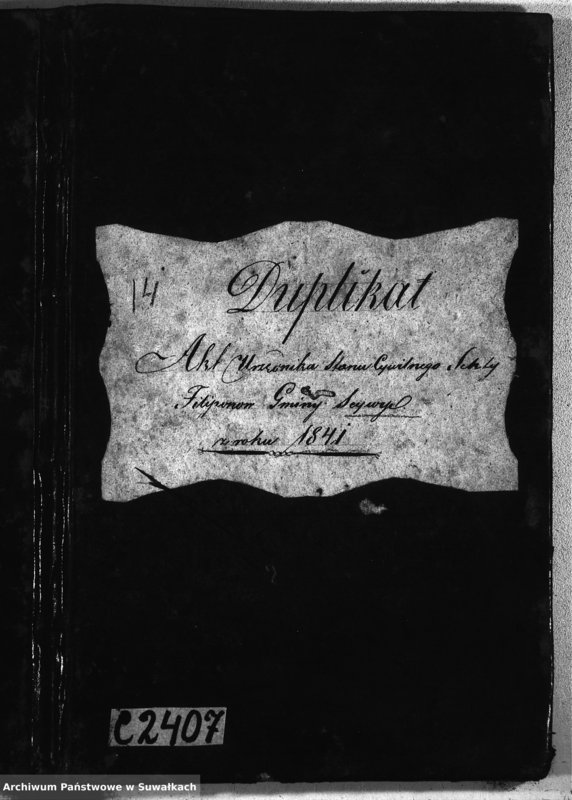 14
Duplikat
Akt Urzędnika Stanu Cywilnego Sekty
Filiponow Gminy
z roku 1841
C2407
Archiwum Państwowe w Suwałkach